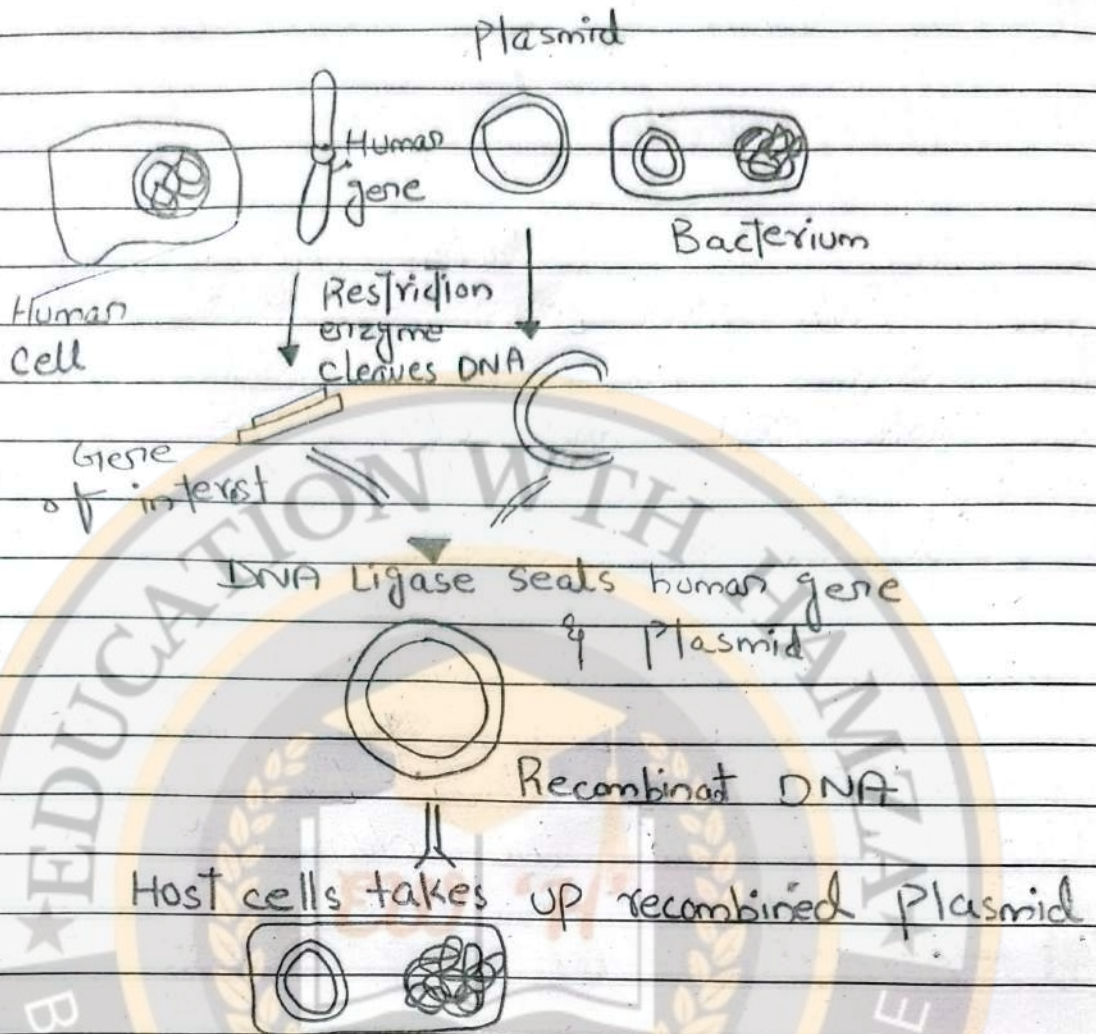 Plasmid
Human
gene
Bacterium
Human
cell
Restriction
enzyme
cleaves DNA
Gene
of interst
DNA Ligase seals human gene
& Plasmid
Recombinat DNA
Host cells takes up recombined Plasmid
EDUCATION WITH HAMZA
B
E